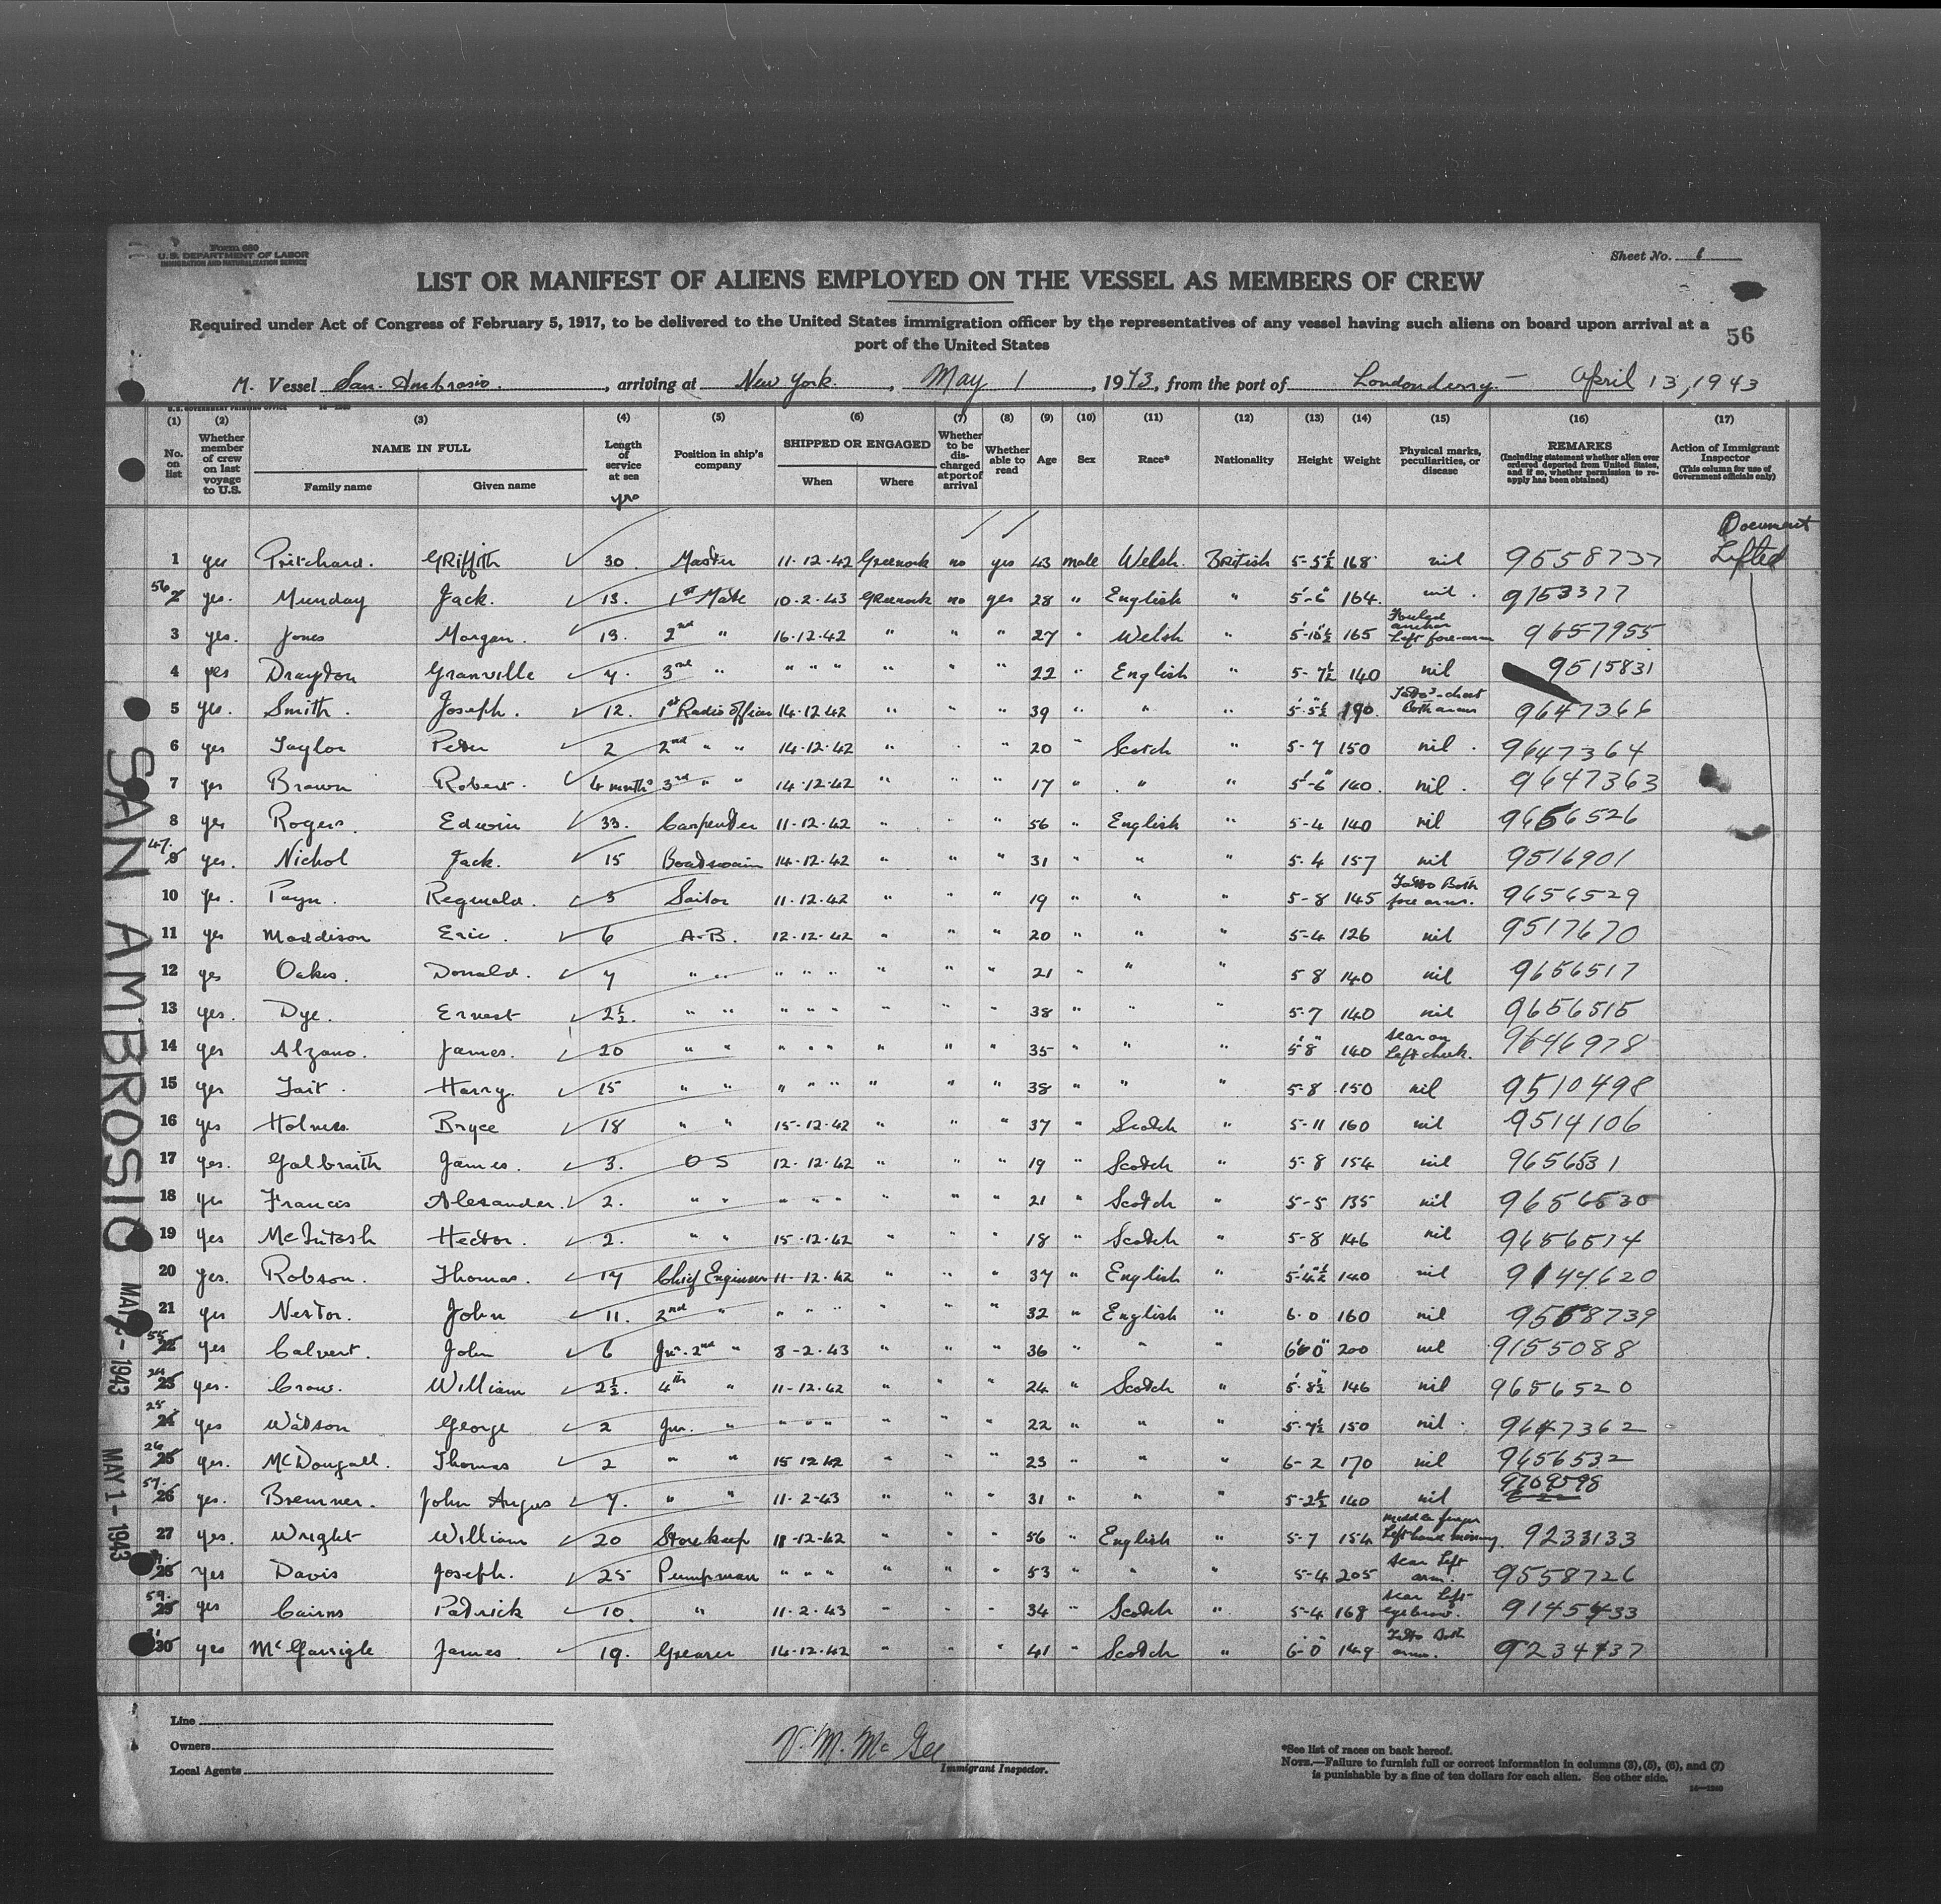 Form 680
U.S. DEPARTMENT OF LABOR
IMMIGRATION AND NATURALIZATION SERVICE
Sheet No. 1
LIST OR MANIFEST OF ALIENS EMPLOYED ON THE VESSEL AS MEMBERS OF CREW
Required under Act of Congress of February 5, 1917, to be delivered to the United States immigration officer by the representatives of any vessel having such aliens on board upon arrival at a
port of the United States
56
M. Vessel San. Ambrosio., arriving at New York., May 1, 1943, from the port of Londonderry.- April 13, 1943
U.S. GOVERNMENT PRINTING OFFICE
(1) (2) (3) (4) (5) (6) (7) (8) (9) (10) (11) (12) (13) (14) (15) (16) (17)
No. on list
Whether member of crew on last voyage to U.S.
NAME IN FULL
Family name Given name
Length of service at sea
yrs
Position in ship's company
SHIPPED OR ENGAGED
When Where
Whether to be discharged at port of arrival
Whether able to read
Age Sex Race* Nationality Height Weight
Physical marks, peculiarities, or disease
REMARKS
(Including statement whether alien ever ordered deported from United States, and if so, whether permission to reapply has been obtained)
Action of Immigrant Inspector
(This column for use of Government officials only)
Document
Lifted
1 yes Pritchard. Griffith 30. Master 11-12-42 Greenock no yes 43 male Welsh. British 5-5½ 168 nil 9558737
56 2 yes. Munday Jack. 13. 1st Mate 10-2-43 Greenock no yes 28 " English " 5'-6" 164. nil. 9153377
3 yes. Jones Morgan. 19. 2nd " 16-12-42 " " " 27 " Welsh " 5'-10½ 165 Fouled anchor Left fore-arm 9657955
4 yes Draydon Granville 4. 3rd " " " " " " " 22 " English " 5-7½ 140 nil 9515831
5 yes. Smith. Joseph. 12. 1st Radio officer 14-12-42 " " " 39 " " " 5-5½ 190. Tatto's-chest Both arms 9647366
6 yes Taylor Peter 2 2nd " " 14-12-42 " " " 20 " Scotch " 5-7 150 nil. 9647364
7 yes Brown Robert. 4 months 3rd " " 14-12-42 " " " 17 " " " 5'-6" 140. nil. 9647363
8 yes Rogers. Edwin 33. Carpenter 11-12-42 " " " 56 " English " 5-4 140 nil 9656526
47. 9 yes. Nichol Jack. 15 Boatswain 14-12-42 " " " 31 " " " 5-4 157 nil 9516901
10 yes. Payn. Reginald. 3 Sailor 11-12-42 " " " 19 " " " 5-8 145 Tatto Both fore arms. 9656529
11 yes Maddison Eric. 6 A-B. 12-12-42 " " " 20 " " " 5-4 126 nil 9517670
12 yes Oakes. Donald. 4 " " " " " " " " 21 " " " 5 8 140 nil 9656517
13 yes. Dye. Ernest 2½. " " " " " " " " 38 " " " 5-7 140 nil 9656515
14 yes Alzano. James. 20 " " " " " " " " 35 " " " 5'8" 140 scar on Left cheek. 9646978
15 yes Tait. Harry. 15 " " " " " " " " 38 " " " 5-8 150 nil 9510498
16 yes Holness Bryce 18 " " 15-12-42 " " " 37 " Scotch " 5-11 160 nil 9514106
17 yes. Galbraith James. 3. O S 12-12-42 " " " 19 " Scotch " 5-8 154 nil 9656531
18 yes Francis Alexander. 2. " " " " " " " " 21 " Scotch " 5-5 135 nil 9656530
19 yes McIntosh Hector. 2. " " 15-12-42 " " " 18 " Scotch " 5-8 146 nil 9656514
20 yes. Robson. Thomas. 14 Chief Engineer 11-12-42 " " " 37 " English " 5-4½ 140 nil 9144620
21 yes Nestor. John 11. 2nd " " " " " " " 32 " English " 6-0 160 nil 9558739
55 22 yes Calvert. John 6 Jnr. 2nd " 8-2-43 " " " 36 " " " 6'0" 200 nil 9155088
24 23 yes. Crow. William 2½. 4th " 11-12-42 " " " 24 " Scotch " 5-8½ 146 nil 9656520
25. 24 yes Watson George 2 Jnr. " " " " " " " 22 " " " 5-7½ 150 nil. 9647362
26 25 yes. McDougall. Thomas 2 " " 15 12 42 " " " 23 " " " 6-2 170 nil 9656532
57. 26 yes. Bremner. John Angus 4. " " 11-2-43 " " " 31 " " " 5-2½ 140 nil 9709598
27 yes. Wright William 20 Storekeep 18-12-42 " " " 56 " English " 5-7 154 middle finger Left hand missing. 9233133
28 yes Davis Joseph. 25 Pumpman " " " " " " 53 " " " 5-4 205 scar Left arm. 9558726
59. 29 yes Cairns Patrick 10. " 11-2-43 " " " 34 " Scotch " 5-4 168 scar Left eyebrow. 9145433
30 yes McGarrigle James. 19. Greaser 14-12-42 " " " 41 " Scotch " 6-0 149 Tatto Both arms. 9234437
SAN AMBROSIO
MAY 1 - 1943
Line
Owners
Local Agents
V. M. McGee
Immigrant Inspector.
*See list of races on back hereof.
NOTE.—Failure to furnish full or correct information in columns (3), (5), (6), and (7)
is punishable by a fine of ten dollars for each alien. See other side.